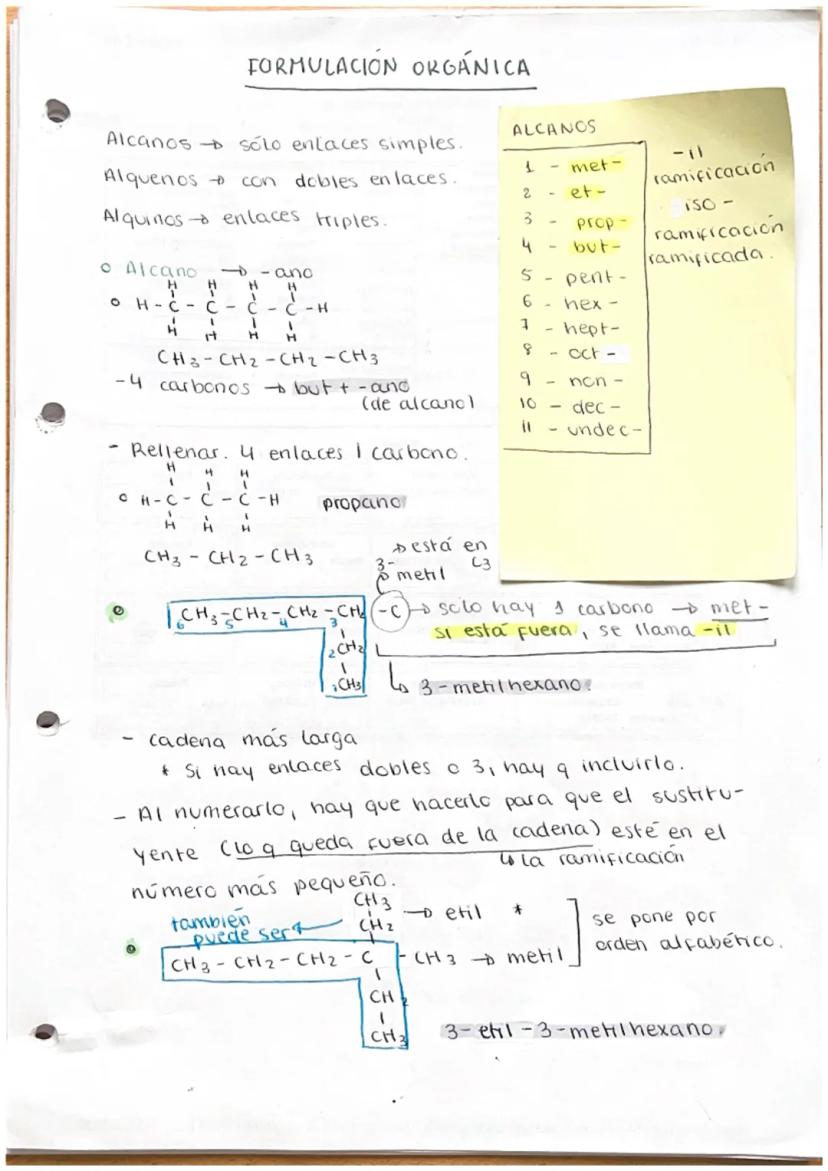 FORMULACIÓN ORGÁNICA
Alcanos → sólo enlaces simples.
Alquenos → con dobles enlaces.
Alquinos → enlaces triples.
ALCANOS
1 - met-
2 - et-
3 - prop-
4 - but-
5 - pent-
6 - hex-
7 - hept-
8 - oct-
9 - non-
10 - dec-
11 - undec-
-il
ramificación
iso -
ramificación
ramificada.
Alcano → -ano
H H H H
H - C - C - C - C - H
H H H H
CH3 - CH2 - CH2 - CH3
-4 carbonos → but + -ano
(de alcano)
- Rellenar. 4 enlaces 1 carbono.
H H H
H - C - C - C - H propano
H H H
CH3 - CH2 - CH3
→ está en
3- C3
metil
CH3 - CH2 - CH2 - CH - C → solo hay 1 carbono → met-
6 5 4 3
si está fuera, se llama -il
2 CH2
1 CH3
↳ 3-metilhexano.
- cadena más larga
* Si hay enlaces dobles o 3, hay q incluirlo.
- Al numerarlo, hay que hacerlo para que el sustitu-
yente (lo q queda fuera de la cadena) esté en el
↳ la ramificación
número más pequeño.
CH3
→ etil *
también
puede ser ← CH2
se pone por
orden alfabético.
CH3 - CH2 - CH2 - C - CH3 → metil
CH2
CH3
3-etil-3-metilhexano.